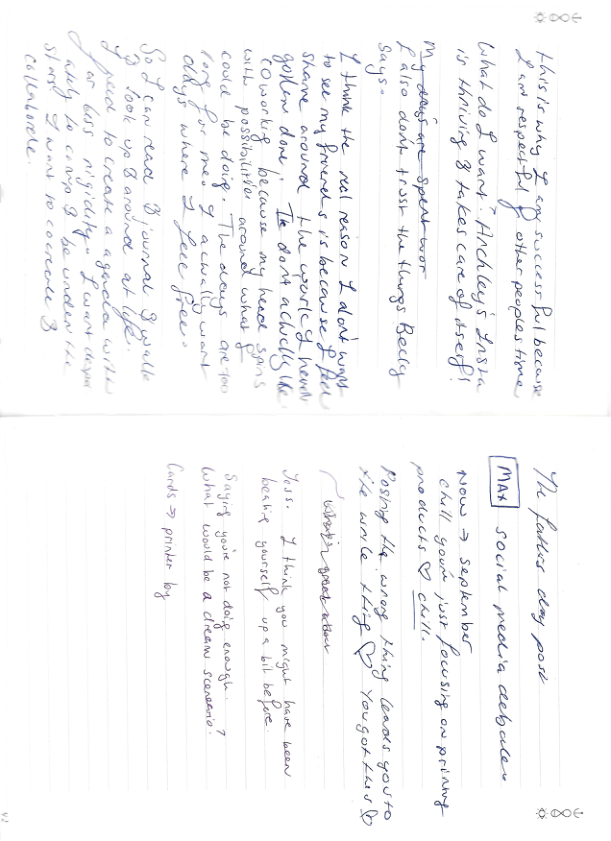 this is why I am successful because
I am respectful of other peoples time
What do I want? Archley's Insta
is thriving & takes care of itself!
My days are spent wor
I also dont trust the things Becky
says.
I think the real reason I don't want
to see my friends is because I feel
shame around the work I havent
gotten done. I dont actually like
coworking because my head spins
with possibilities around what I
could be doing. The days are too
long for me. I actually want
days where I feel free.
So I can read & journal & walk
& look up & around at life.
I need to create a agenda with
a less rigidity. I want
to & be under the
stars. I want to cocreate &
collaborate.
The fathers day post
MAX social media
Now → september
chill you're just focusing on printing
products ♡ chill.
Posting the wrong thing leads you to
the write thing ♡ You got this ♡
Joss. I think you might have been
beating yourself up a bit before.
Saying you're not doing enough.
What would be a dream scenario?
Cards → printer by
92